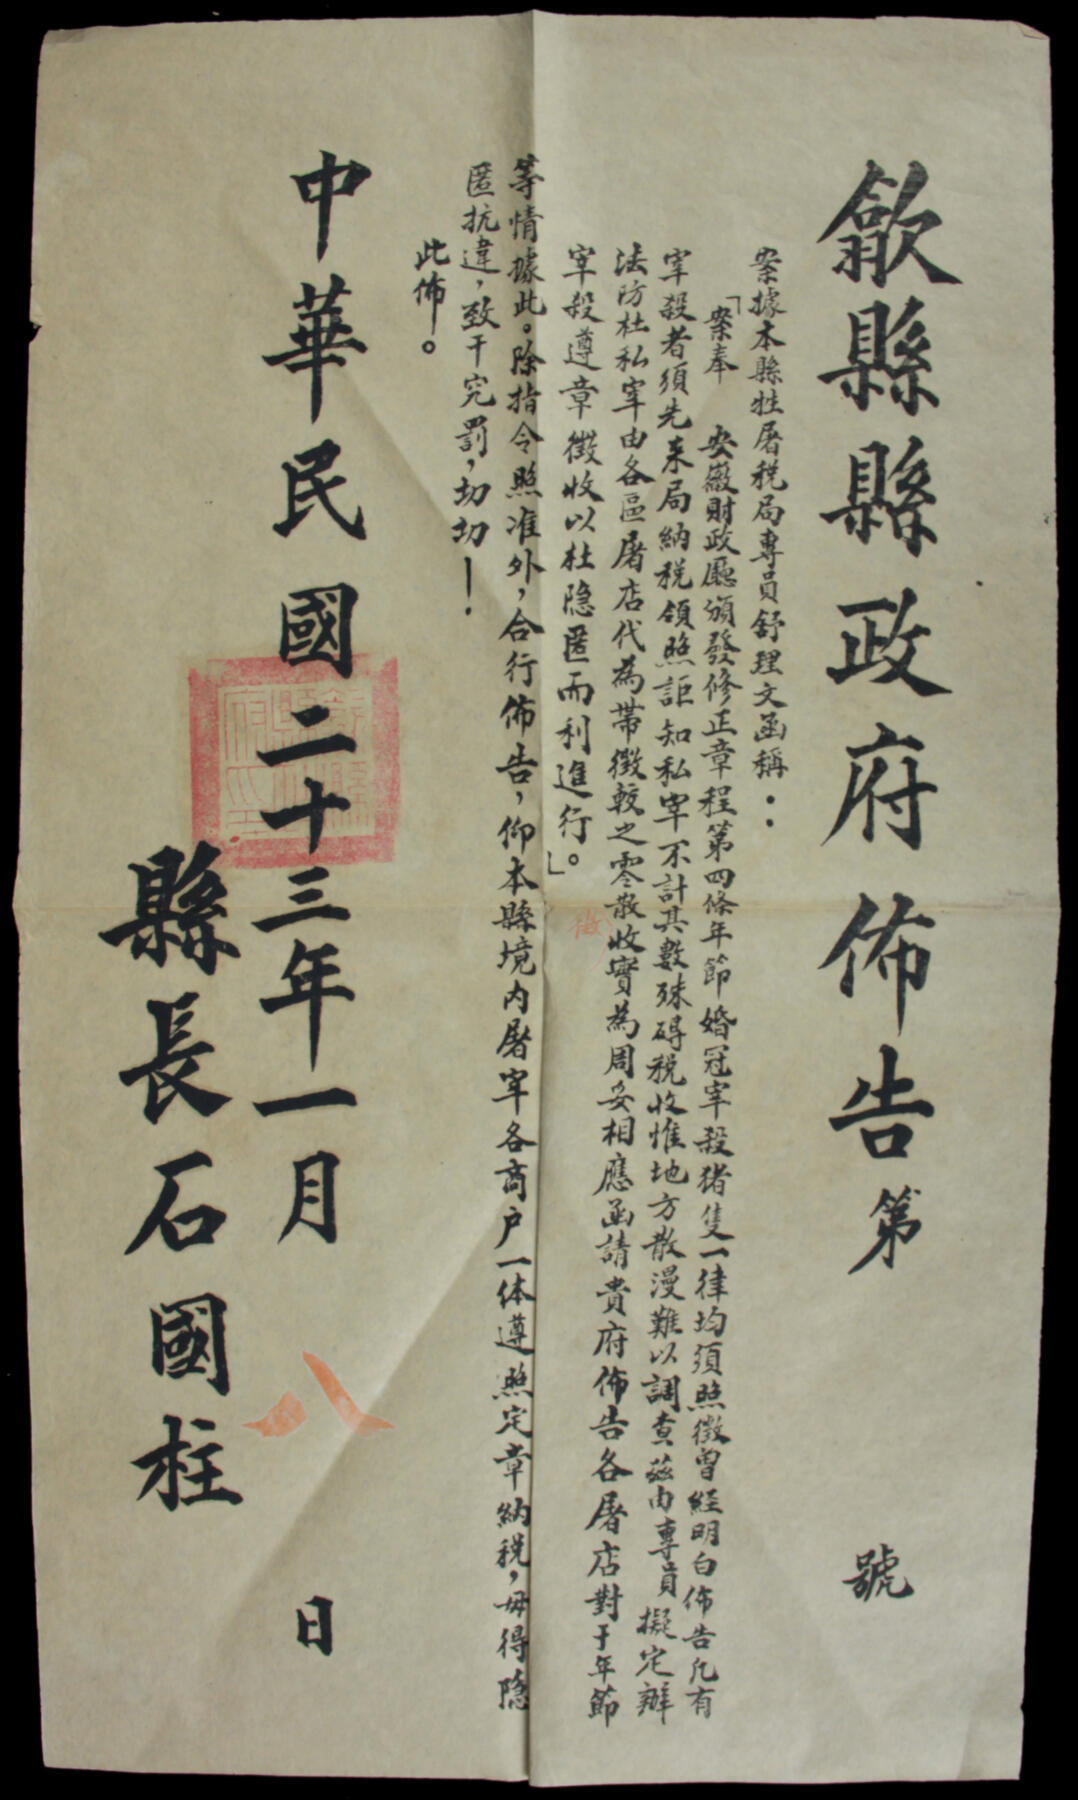 歙縣縣政府佈告第 號
案據本縣牲屠税局專員舒理文函稱：
「案奉 安徽財政廳頒發修正章程第四條年節婚冠宰殺猪隻一律均須照徵曾經明白佈告凡有
宰殺者須先来局納税領照詎知私宰不計其數殊碍税收惟地方散漫難以調查兹由專員擬定辦
法防杜私宰由各區屠店代為帶徵較之零散收實為周妥相應函請貴府佈告各屠店對于年節
徵
宰殺遵章徵收以杜隐匿而利進行。」
等情據此。除指令照准外，合行佈告，仰本縣境内屠宰各商户一体遵照定章納税，毋得隐
匿抗違，致干究罰，切切！
此佈。
中華民國二十三年一月八日
縣長石國柱